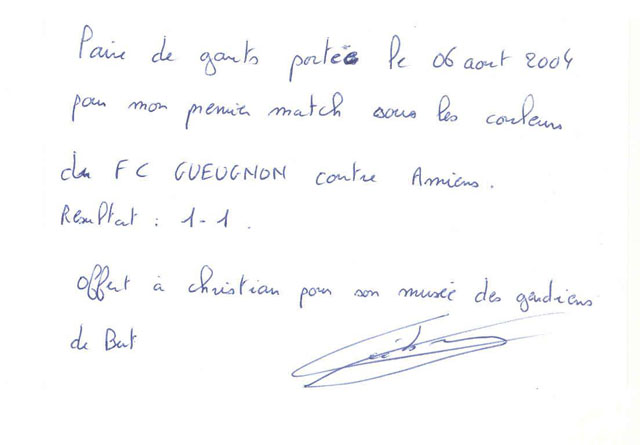 Paire de gants portée le 06 aout 2004
pour mon premier match sous les couleurs
du FC GUEUGNON contre Amiens.
Resultat : 1-1.
Offert à christian pour son musée des gardiens
de But